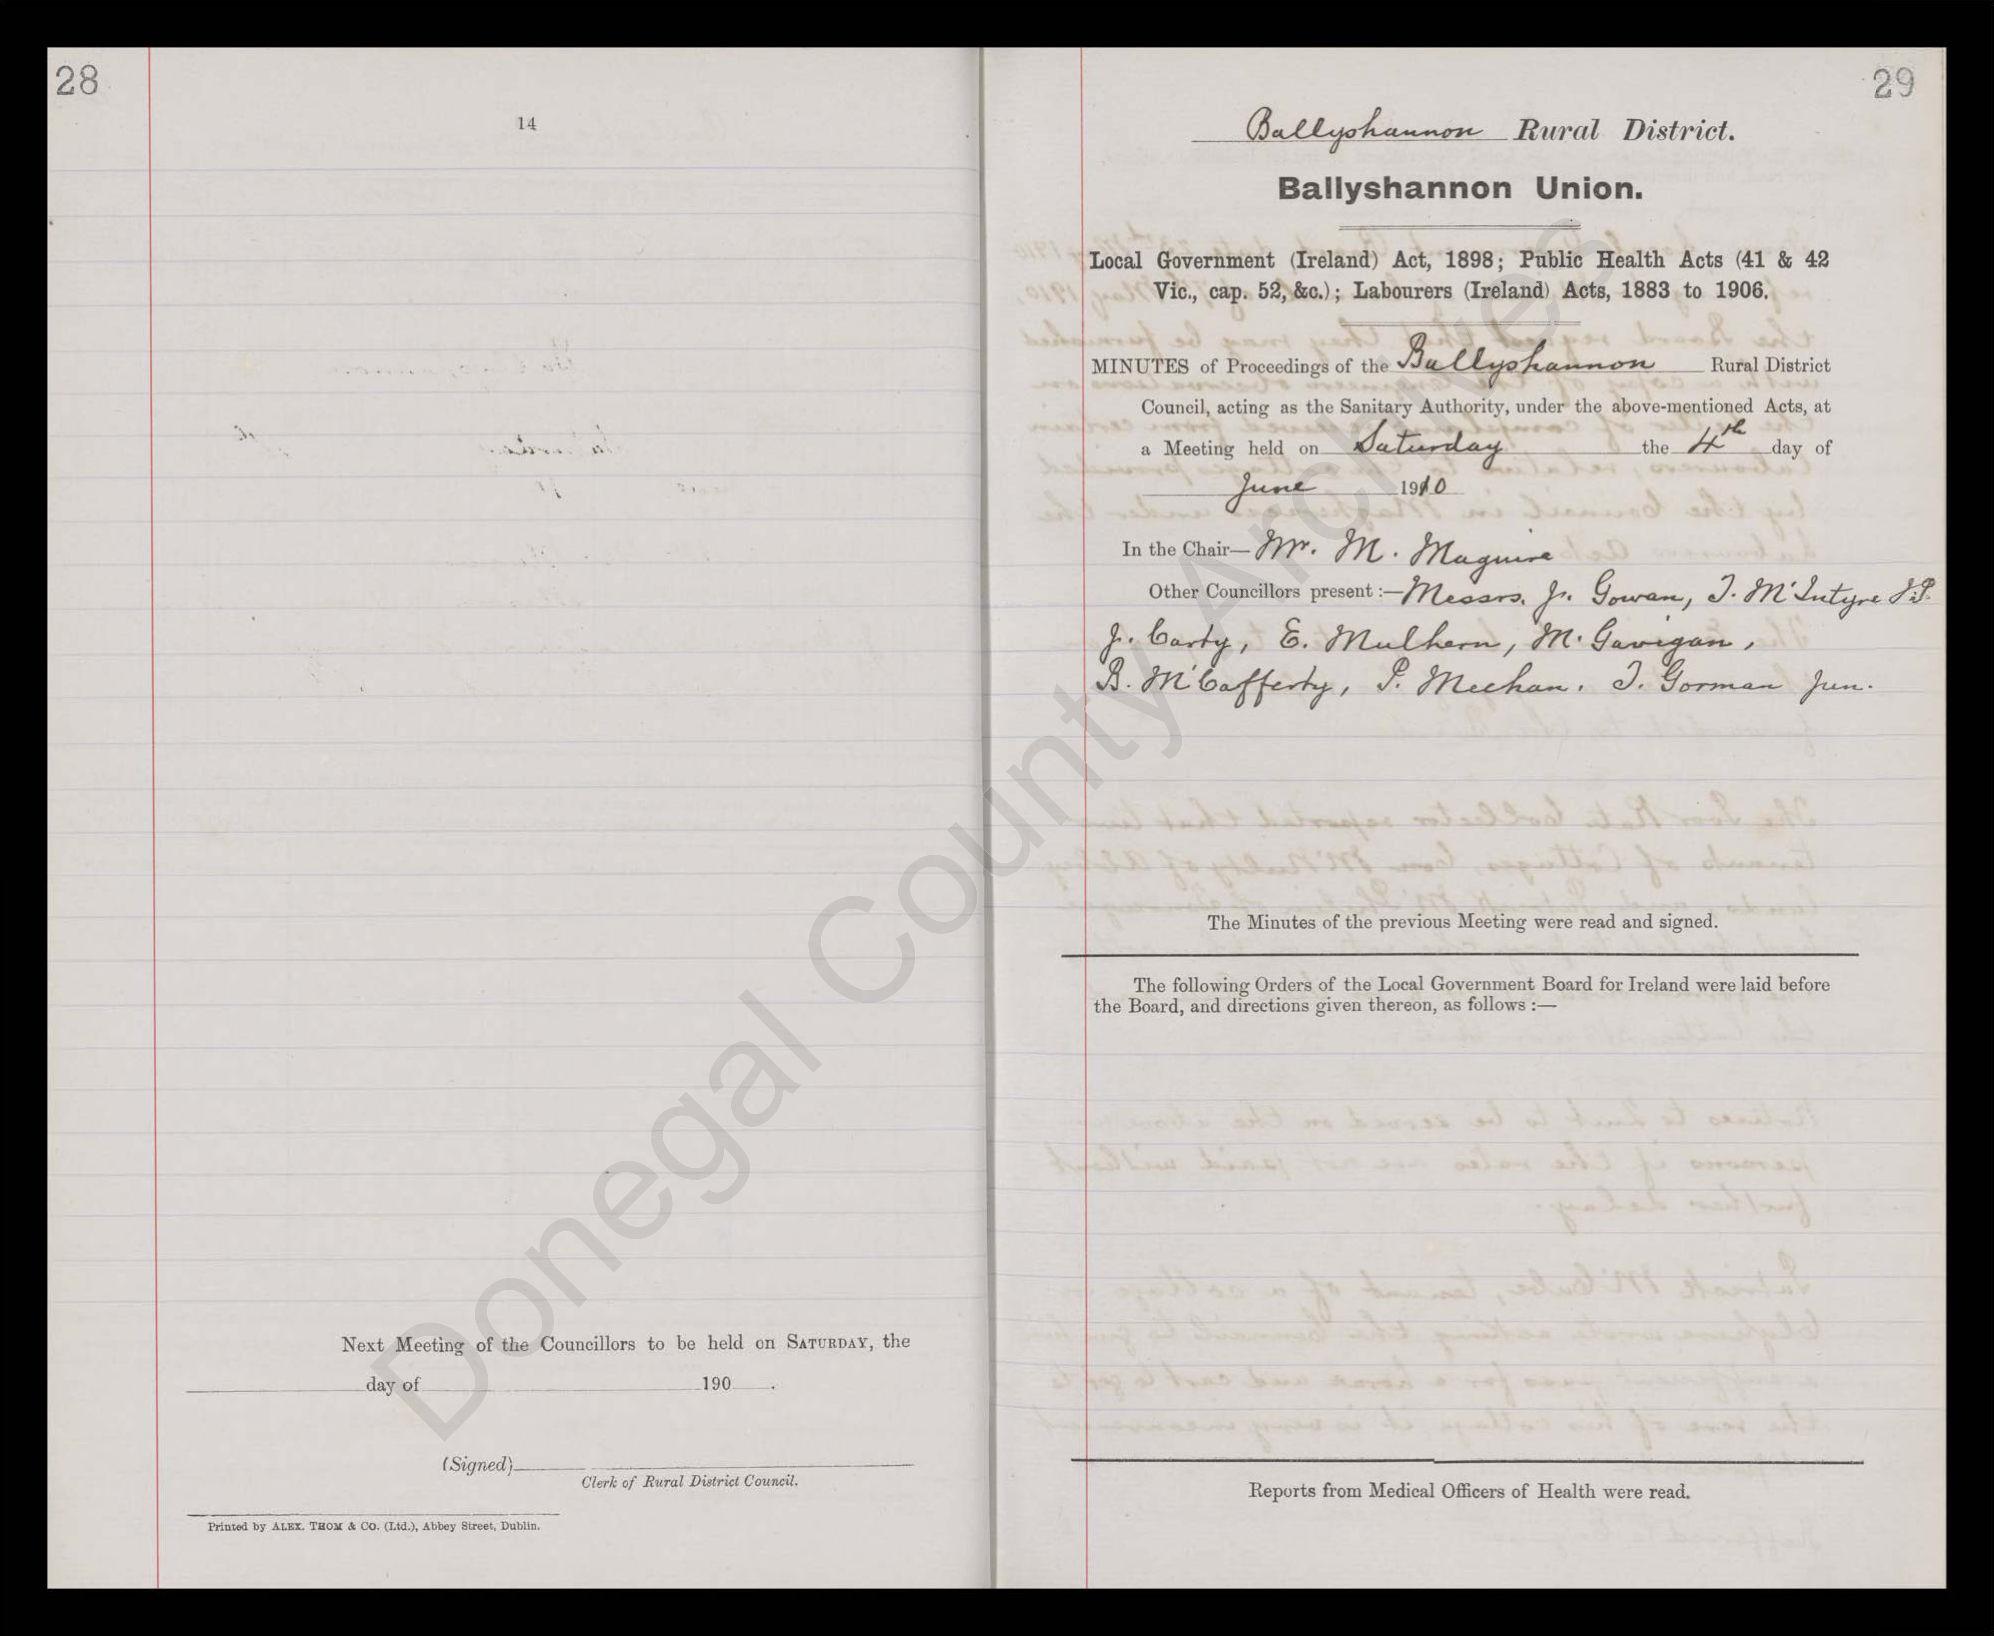 28
14
Next Meeting of the Councillors to be held on SATURDAY, the
day of 190 .
(Signed)
Clerk of Rural District Council.
Printed by ALEX. THOM & CO. (Ltd.), Abbey Street, Dublin.
29
Ballyshannon Rural District.
Ballyshannon Union.
Local Government (Ireland) Act, 1898; Public Health Acts (41 & 42
Vic., cap. 52, &c.); Labourers (Ireland) Acts, 1883 to 1906.
MINUTES of Proceedings of the Ballyshannon Rural District
Council, acting as the Sanitary Authority, under the above-mentioned Acts, at
a Meeting held on Saturday the 4th day of
June 1910
In the Chair— Mr. M. Maguire
Other Councillors present :— Messrs. J. Gowan, T. McIntyre J.P.
J. Carty, E. Mulhern, M. Gavigan,
B. McCafferty, P. Meehan. T. Gorman Jun.
The Minutes of the previous Meeting were read and signed.
The following Orders of the Local Government Board for Ireland were laid before
the Board, and directions given thereon, as follows :—
Reports from Medical Officers of Health were read.
Donegal County Archives